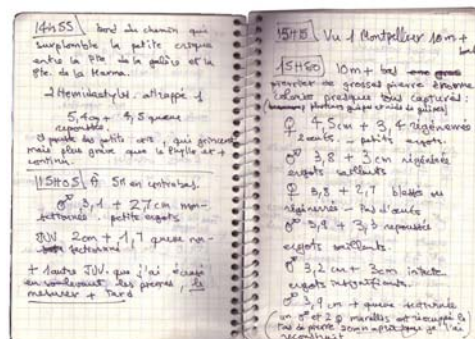 14h55 bord du chemin qui
surplombe la petite crique
entre la Pte. de la galère et la
Pte. de la Marma.
2 Hemidactyles. attrappé 1
5,4cm + 4,5 queue
repoussée.
des petits cris, qui grincent
mais plus grave que le Phylle et +
continu.
15h05 À 5m en contrebas.
♂ 3,1 + 2,7 cm non-
petits ergots
JUV 2cm + 1,7 queue
+ 1 autre JUV. que j'ai écrasé
en soulevant les pierres, le
mesurer + tard
15h15 Vu 1 Montpellier 10m +
bas
15h20 10m + bas
pierrier de grosses pierres énorme
colonie presque tous capturés.
♀ 4,5cm + 3,4 régénérée
2 œufs - petits ergots.
♂ 3,8 + 3cm régénérée
ergots saillants
♀ 3,8 + 2,7 ou
régénérée - Pas d'œufs
♂ 3,9 + 3,3 repoussée
ergots saillants.
♂ 3,2 cm + 3cm intacte
ergots insignifiants.
♂ 3,9 cm + queue sectionnée
un ♂ et 2 ♀ le
tas de pierre 20mn après que je l'ai
reconstruit